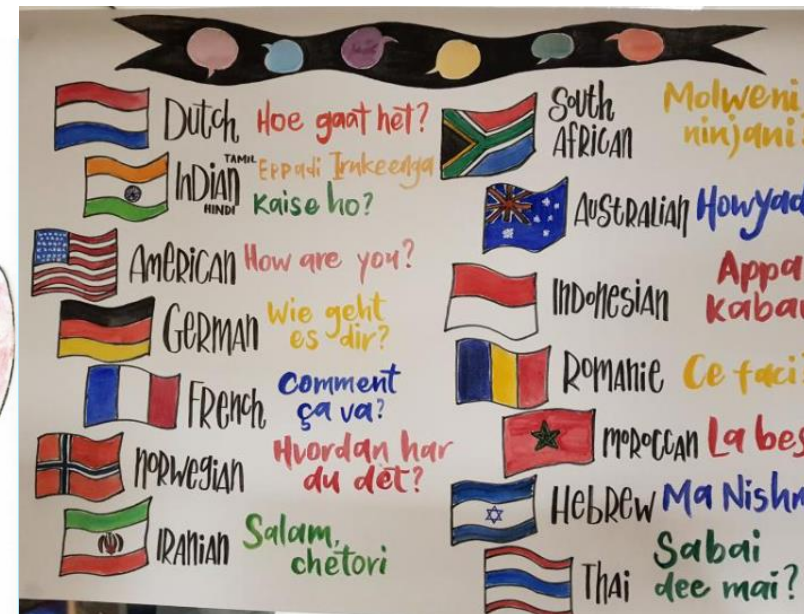 Dutch Hoe gaat het?
Indian TAMIL Eppadi Irukeenga
HINDI Kaise ho?
American How are you?
German Wie geht
es dir?
French Comment
ça va?
Norwegian Hvordan har
du det?
Iranian Salam,
chetori
South
African
Molweni
ninjani?
Australian Howyad
Indonesian Appa
Kaba
Romanie Ce faci?
Moroccan La bes
Hebrew Ma Nish
Thai Sabai
dee mai?